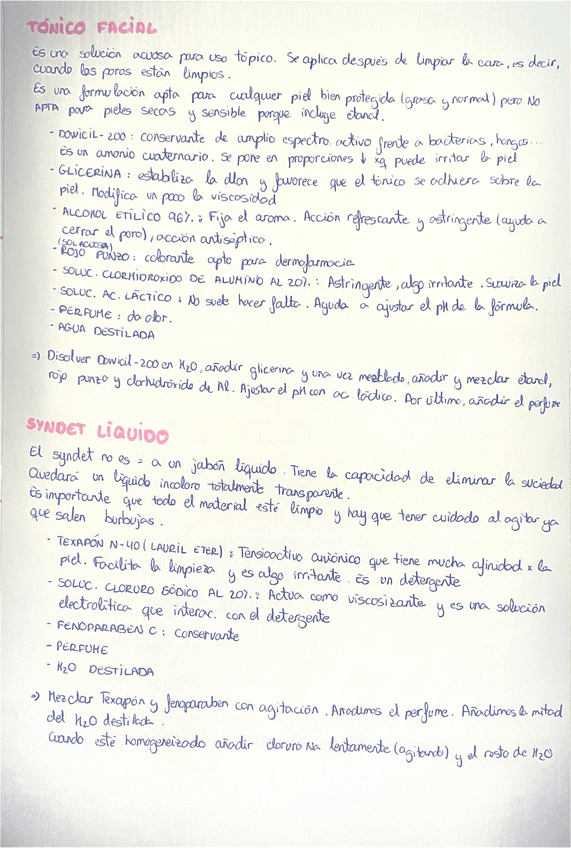 TÓNICO FACIAL
Es una solución acuosa para uso tópico. Se aplica después de limpiar la cara, es decir,
cuando los poros están limpios.
Es una formulación apta para cualquier piel bien protegida (grasa y normal) pero NO
APTA para pieles secas y sensible porque incluye etanol.
- DOWICIL-200 : conservante de amplio espectro activo frente a bacterias, hongos...
Es un amonio cuaternario. Se pone en proporciones ↓ xq puede irritar la piel
- GLICERINA : estabiliza la dlon y favorece que el tónico se adhiera sobre la
piel. Modifica un poco la viscosidad
- ALCOHOL ETÍLICO 96%. : Fija el aroma. Acción refrescante y astringente (ayuda a
cerrar el poro), acción antiséptico.
(SOL ACUOSA)
- ROJO PUNZO : colorante apto para dermofarmacia
- SOLUC. CLORHIDROXIDO DE ALUMINIO AL 20%. : Astringente, algo irritante. Suaviza la piel
- SOLUC. AC. LÁCTICO : No suele hacer falta. Ayuda a ajustar el pH de la fórmula.
- PERFUME : da olor.
- AGUA DESTILADA
=) Disolver Dowicil-200 en H2O, añadir glicerina y una vez mezclado, añadir y mezclar etanol,
rojo punzo y clorhidróxido de Al. Ajustar el pH con ac láctico. Por último, añadir el perfume
SYNDET LÍQUIDO
El syndet no es = a un jabón líquido. Tiene la capacidad de eliminar la suciedad
Quedará un líquido incoloro totalmente transparente.
Es importante que todo el material esté limpio y hay que tener cuidado al agitar ya
que salen burbujas.
- TEXAPÓN N-40 (LAURIL ETER) : Tensioactivo aniónico que tiene mucha afinidad x la
piel. Facilita la limpieza y es algo irritante. Es un detergente
- SOLUC. CLORURO SÓDICO AL 20%. : Actua como viscosizante y es una solución
electrolítica que interac. con el detergente
- FENOPARABEN C : conservante
- PERFUME
- H2O DESTILADA
=) Mezclar Texapón y fenoparaben con agitación. Añadimos el perfume. Añadimos la mitad
del H2O destilada.
Cuando esté homogeneizado añadir cloruro Na lentamente (agitando) y el resto de H2O